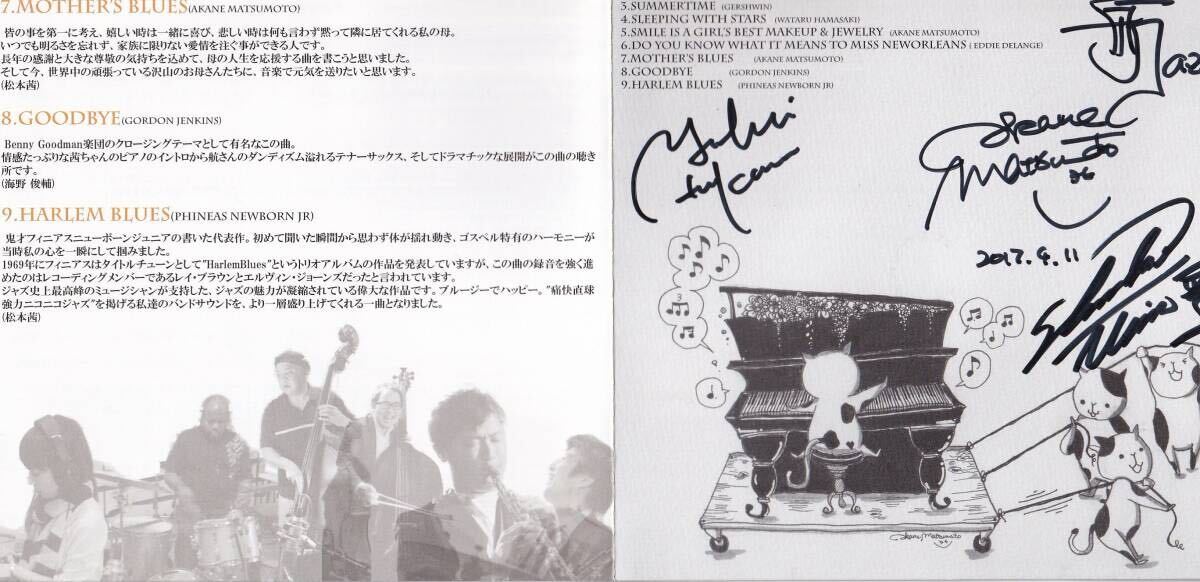 7.MOTHER'S BLUES(AKANE MATSUMOTO)
皆の事を第一に考え、嬉しい時は一緒に喜び、悲しい時は何も言わず黙って隣に居てくれる私の母。
いつでも明るさを忘れず、家族に限りない愛情を注ぐ事ができる人です。
長年の感謝と大きな尊敬の気持ちを込めて、母の人生を応援する曲を書こうと思いました。
そして今、世界中の頑張っている沢山のお母さんたちに、音楽で元気を送りたいと思います。
(松本茜)
8.GOODBYE(GORDON JENKINS)
Benny Goodman楽団のクロージングテーマとして有名なこの曲。
情感たっぷりな茜ちゃんのピアノのイントロから航さんのダンディズム溢れるテナーサックス、そしてドラマチックな展開がこの曲の聴き
所です。
(海野 俊輔)
9.HARLEM BLUES(PHINEAS NEWBORN JR)
鬼才フィニアスニューボーンジュニアの書いた代表作。初めて聞いた瞬間から思わず体が揺れ動き、ゴスペル特有のハーモニーが
当時私の心を一瞬にして掴みました。
1969年にフィニアスはタイトルチューンとして"HarlemBlues"というトリオアルバムの作品を発表していますが、この曲の録音を強く進
めたのはレコーディングメンバーであるレイ・ブラウンとエルヴィン・ジョーンズだったと言われています。
ジャズ史上最高峰のミュージシャンが支持した、ジャズの魅力が凝縮されている偉大な作品です。ブルージーでハッピー。"痛快直球
強力ニコニコジャズ"を掲げる私達のバンドサウンドを、より一層盛り上げてくれる一曲となりました。
(松本茜)
3.SUMMERTIME (GERSHWIN)
4.SLEEPING WITH STARS (WATARU HAMASAKI)
5.SMILE IS A GIRL'S BEST MAKEUP & JEWELRY (AKANE MATSUMOTO)
6.DO YOU KNOW WHAT IT MEANS TO MISS NEWORLEANS ( EDDIE DELANGE)
7.MOTHER'S BLUES (AKANE MATSUMOTO)
8.GOODBYE (GORDON JENKINS)
9.HARLEM BLUES (PHINEAS NEWBORN JR)
Akane
Matsumoto
2017.9.11
Akane Matsumoto